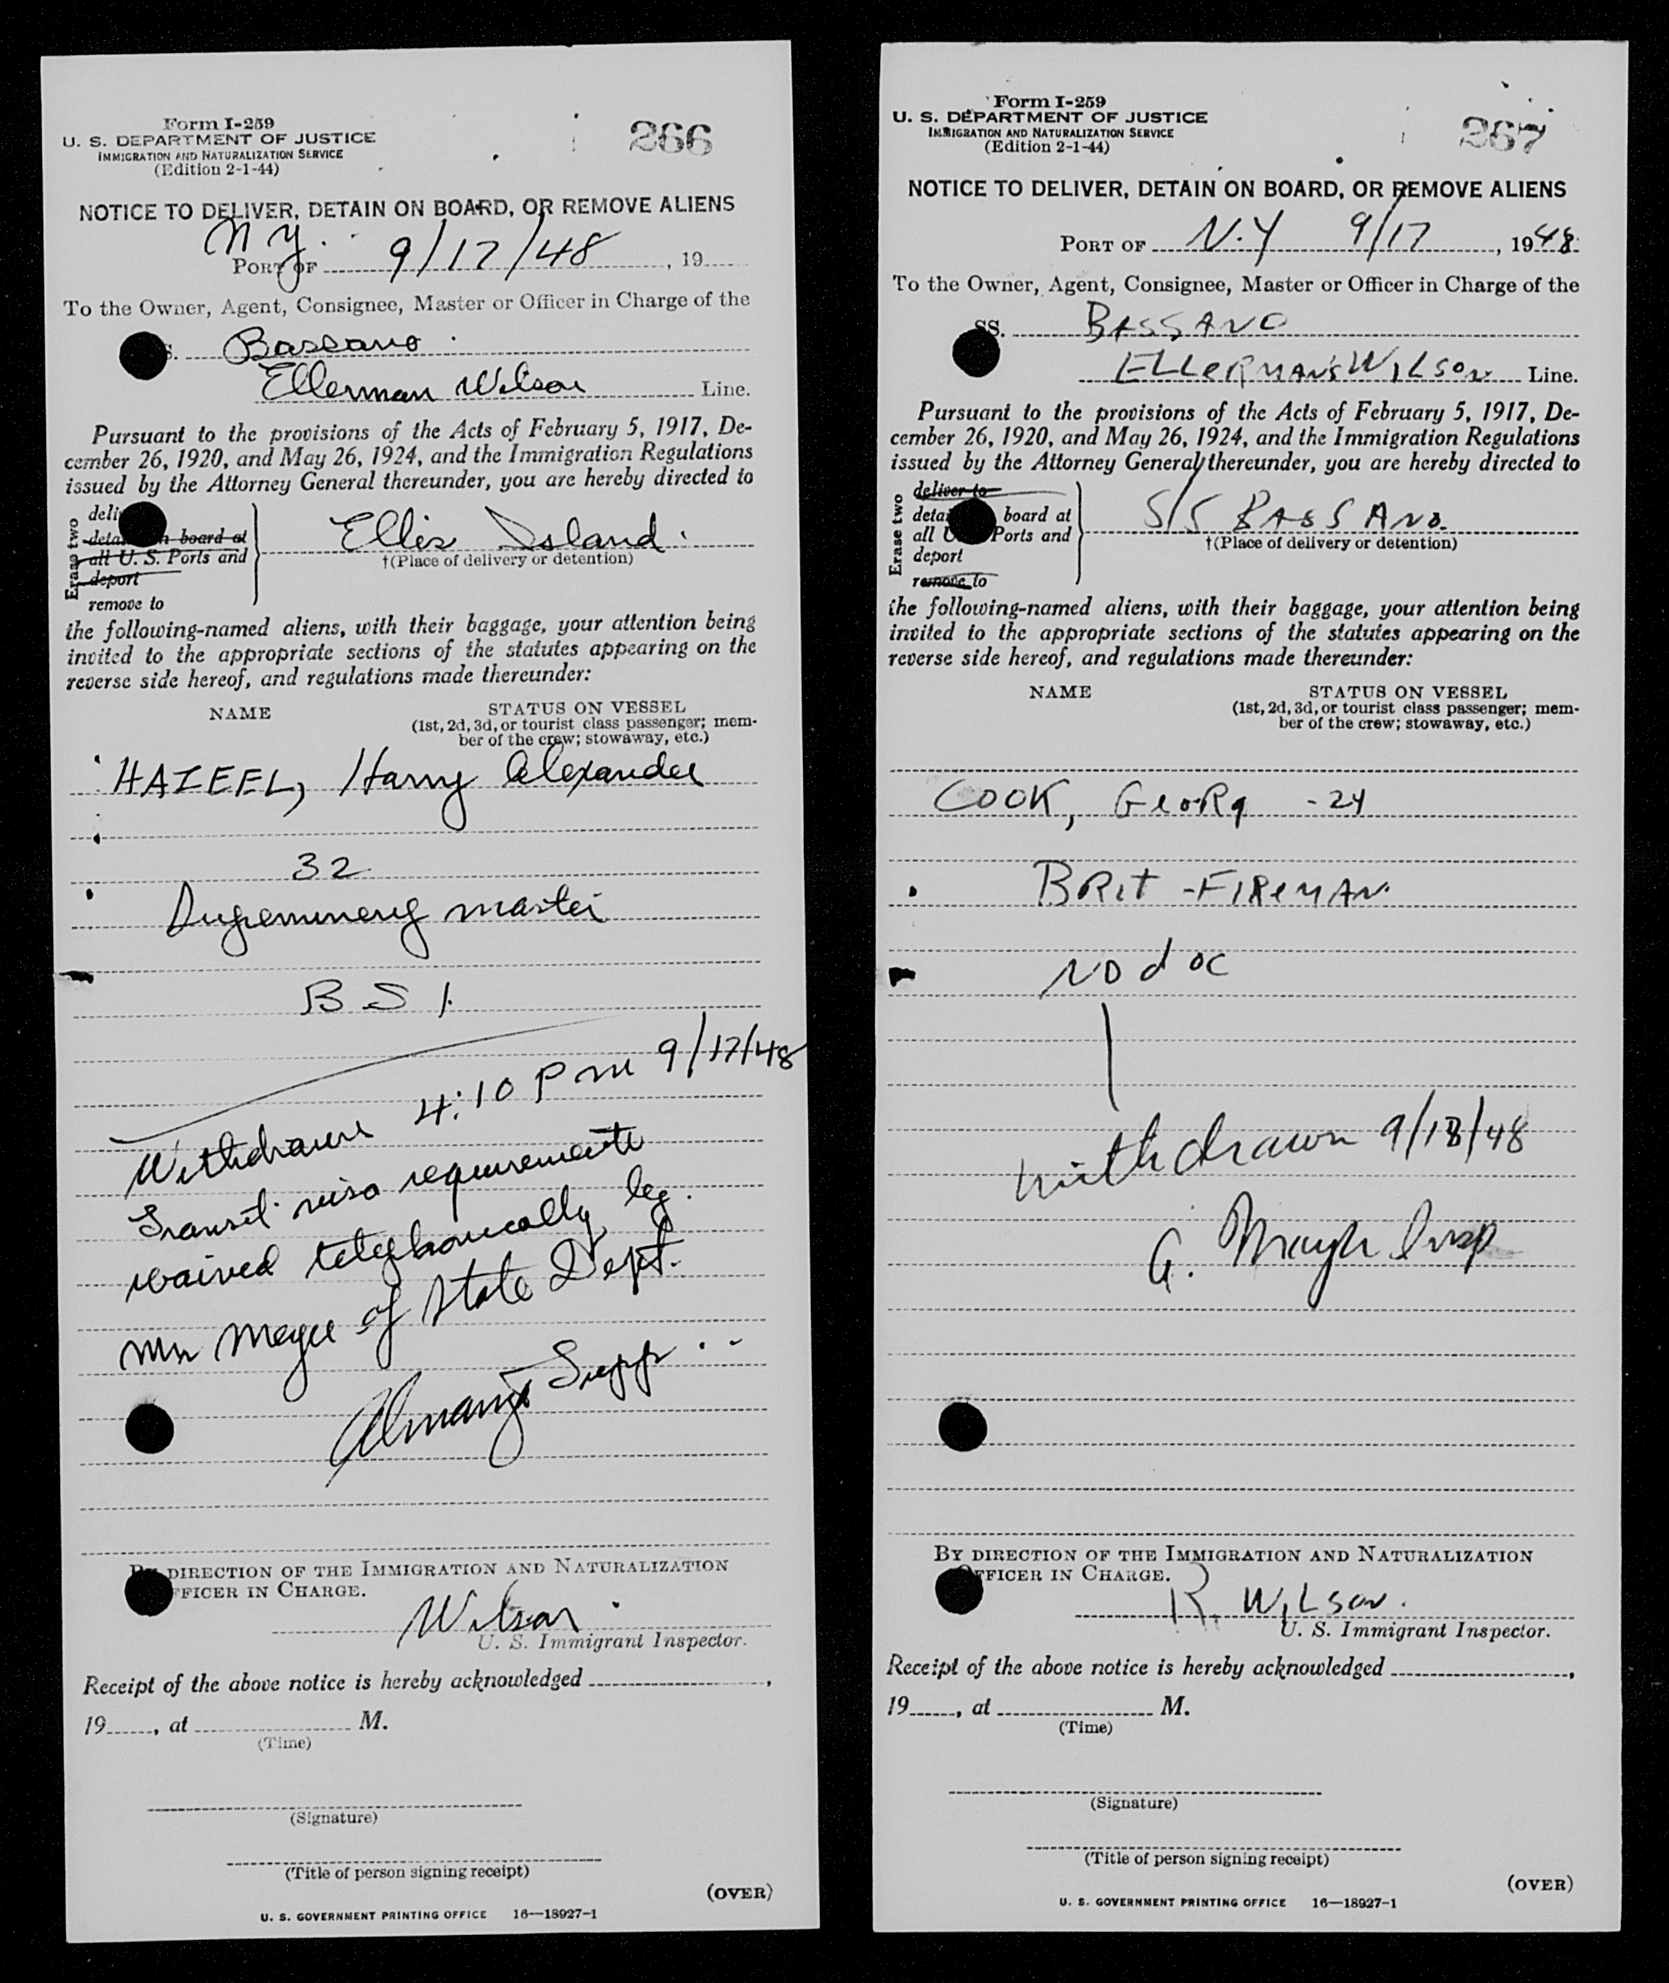 Form I-259
U. S. DEPARTMENT OF JUSTICE
IMMIGRATION AND NATURALIZATION SERVICE
(Edition 2-1-44)
266
NOTICE TO DELIVER, DETAIN ON BOARD, OR REMOVE ALIENS
N.Y.
PORT OF 9/17/48, 19
To the Owner, Agent, Consignee, Master or Officer in Charge of the
S. Bassano
Ellerman Wilson Line.
Pursuant to the provisions of the Acts of February 5, 1917, De-
cember 26, 1920, and May 26, 1924, and the Immigration Regulations
issued by the Attorney General thereunder, you are hereby directed to
Erase two
deli
deta n board at
all U. S. Ports and
deport
remove to
Ellis Island.
†(Place of delivery or detention)
the following-named aliens, with their baggage, your attention being
invited to the appropriate sections of the statutes appearing on the
reverse side hereof, and regulations made thereunder:
NAME STATUS ON VESSEL
(1st, 2d, 3d, or tourist class passenger; mem-
ber of the crew; stowaway, etc.)
Harry Alexander
32
master
B S I.
Withdrawn 4:10 PM 9/17/48
Transit visa requirements
waived telephonically by
Mr of State Dept.
By DIRECTION OF THE IMMIGRATION AND NATURALIZATION
FFICER IN CHARGE.
Wilson
U. S. Immigrant Inspector.
Receipt of the above notice is hereby acknowledged ,
19 , at M.
(Time)
(Signature)
(Title of person signing receipt)
(OVER)
U. S. GOVERNMENT PRINTING OFFICE 16—18927-1
Form I-259
U. S. DEPARTMENT OF JUSTICE
IMMIGRATION AND NATURALIZATION SERVICE
(Edition 2-1-44)
267
NOTICE TO DELIVER, DETAIN ON BOARD, OR REMOVE ALIENS
PORT OF N.Y 9/17, 1948
To the Owner, Agent, Consignee, Master or Officer in Charge of the
SS. BASSANO
ELLERMAN'S WILSON Line.
Pursuant to the provisions of the Acts of February 5, 1917, De-
cember 26, 1920, and May 26, 1924, and the Immigration Regulations
issued by the Attorney General thereunder, you are hereby directed to
Erase two
deliver to
detai board at
all U Ports and
deport
remove to
S/S BASSANO.
†(Place of delivery or detention)
the following-named aliens, with their baggage, your attention being
invited to the appropriate sections of the statutes appearing on the
reverse side hereof, and regulations made thereunder:
NAME STATUS ON VESSEL
(1st, 2d, 3d, or tourist class passenger; mem-
ber of the crew; stowaway, etc.)
COOK, GeoRg -24
BRIt - FIREMAN.
NO doc
withdrawn 9/18/48
G. Insp
BY DIRECTION OF THE IMMIGRATION AND NATURALIZATION
OFFICER IN CHARGE.
R. WILSON.
U. S. Immigrant Inspector.
Receipt of the above notice is hereby acknowledged ,
19 , at M.
(Time)
(Signature)
(Title of person signing receipt)
(OVER)
U. S. GOVERNMENT PRINTING OFFICE 16—18927-1